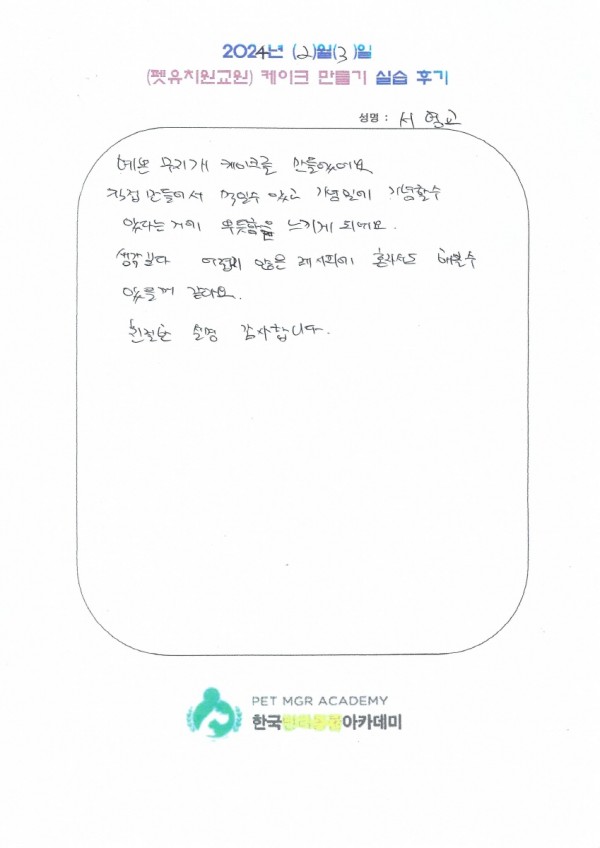 2024년 (2)월(3)일
(펫유치원교원) 케이크 만들기 실습 후기
성명 : 서영교
예쁜 무지개 케이크를 만들었어요
직접 만들어서 먹일수 있고 기념일에 기념할수
있다는거에 뿌듯함을 느끼게 되네요.
생각보다 어렵지 않은 레시피에 혼자서도 해볼수
있을꺼 같아요.
친절한 설명 감사합니다.
PET MGR ACADEMY
한국반려동물아카데미